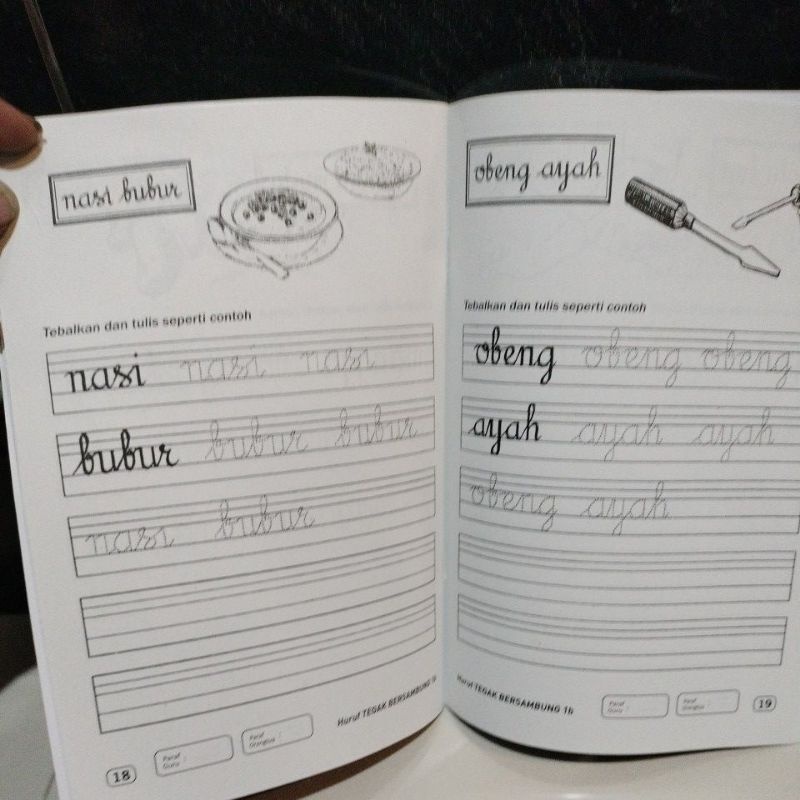 nasi bubur
Tebalkan dan tulis seperti contoh
nasi nasi nasi
bubur bubur bubur
nasi bubur
Huruf TEGAK BERSAMBUNG 1b
18
Paraf
Guru :
Paraf
Orangtua :
obeng ayah
Tebalkan dan tulis seperti contoh
obeng obeng obeng
ayah ayah ayah
obeng ayah
Huruf TEGAK BERSAMBUNG 1b
Paraf
Guru :
Paraf
Orangtua :
19